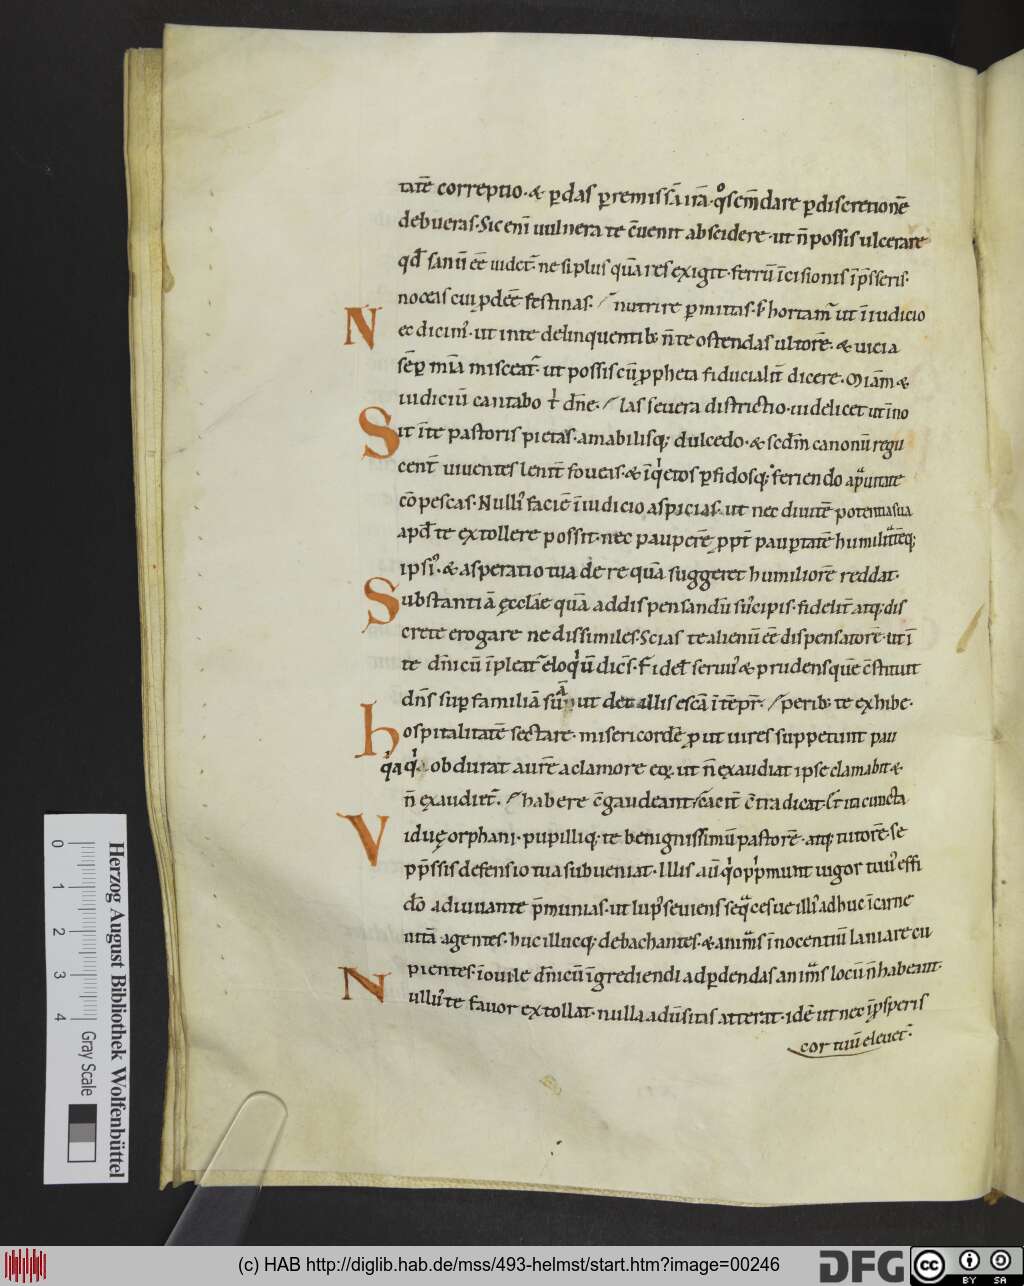 tatē correptio · & ꝑdas ꝑremissā irā · qͦ scm̄ dare ꝑ discretionē
debueras · Sic enī vulnera te c̄uenit abscidere · ut n̄ possis ulcerare
qđ sanū ēē uidet᷑ · ne si plus quā res exigit · ferrū īcisionis īp̄sseris ·
noceas cui ꝓdēē festinas · / nutrire ꝑmittas · hortam᷑ ut ī iudicio
N ec dicim᷒ · ut in te delinquentib᷒ n̄ te ostendas ultorē · & uicia
sēꝑ mīa misceat᷑ · ut possis cū ꝓpheta fiducialit̄ dicere · Miām &
iudiciū cantabo t̄ dn̄e · / las seuera districtio · uidelicet ut īno
S it īte pastoris pietas · amabilisq; dulcedo · & scdm̄ canonū regu
cent̄ viuentes lenit̄ foueas · & īqͥetos ꝑfidosq; feriendo a prauitate
cōpescas · Nulli᷒ faciē ī iudicio aspicias · ut nec diuitē potentia sua
apđ te extollere possit · nec pauperē ꝓpt̄ pauꝑtatē humilitatēq;
ipsi᷒ · & asperatio tua de re quā suggeret humiliorē reddat ·
S ubstantiā ęcclāe quā ad dispensandū su᷒cipis · fidelit̄ atq; dis
crete erogare ne dissimiles · Scias te alienū ēē dispensatorē · ut ī
te dn̄icū īpleat᷑ eloqͥū dicn̄s · Fidel᷒ seru᷒ & prudens quē c̄stituit
dn̄s suꝑ familiā suā ut det illis escā ī tēpr̄ · / perib᷒ te exhibe ·
h ospitalitatē sectare · misericordē ꝓut uires suppetunt pau
qͥa qͥ obdurat aurē a clamore eoꝝ ut n̄ exaudiat ipse clamabit &
n̄ exaudiet᷑ · / habere c̄gaudeant · c̄tradicat · cuncta
V iduę orphani · pupilliq; te benignissimū pastorē · atq; tutorē · se
p̄ssis defensio tua subueniat · Illis aū qͥ opp̄munt uigor tuu᷒ effi
dō adiuuante p̄munias · ut lup᷒ seuiens illi᷒ adhuc ī carne
uitā agentes · huc illucq; debachantes · & animas īnocentiū laniare cu
pientes · ī ouile dn̄icū īgrediendi ad ꝑdendas animas locū n̄ habeant ·
N ullu᷒ te fauor extollat · nulla adu̅sitas atterat · idē ut nec īꝓsperis
cor tuū eleuet᷑ ·
0 1 2 3 4
Gray Scale
Herzog August Bibliothek Wolfenbüttel
(c) HAB http://diglib.hab.de/mss/493-helmst/start.htm?image=00246
DFG
cc BY SA